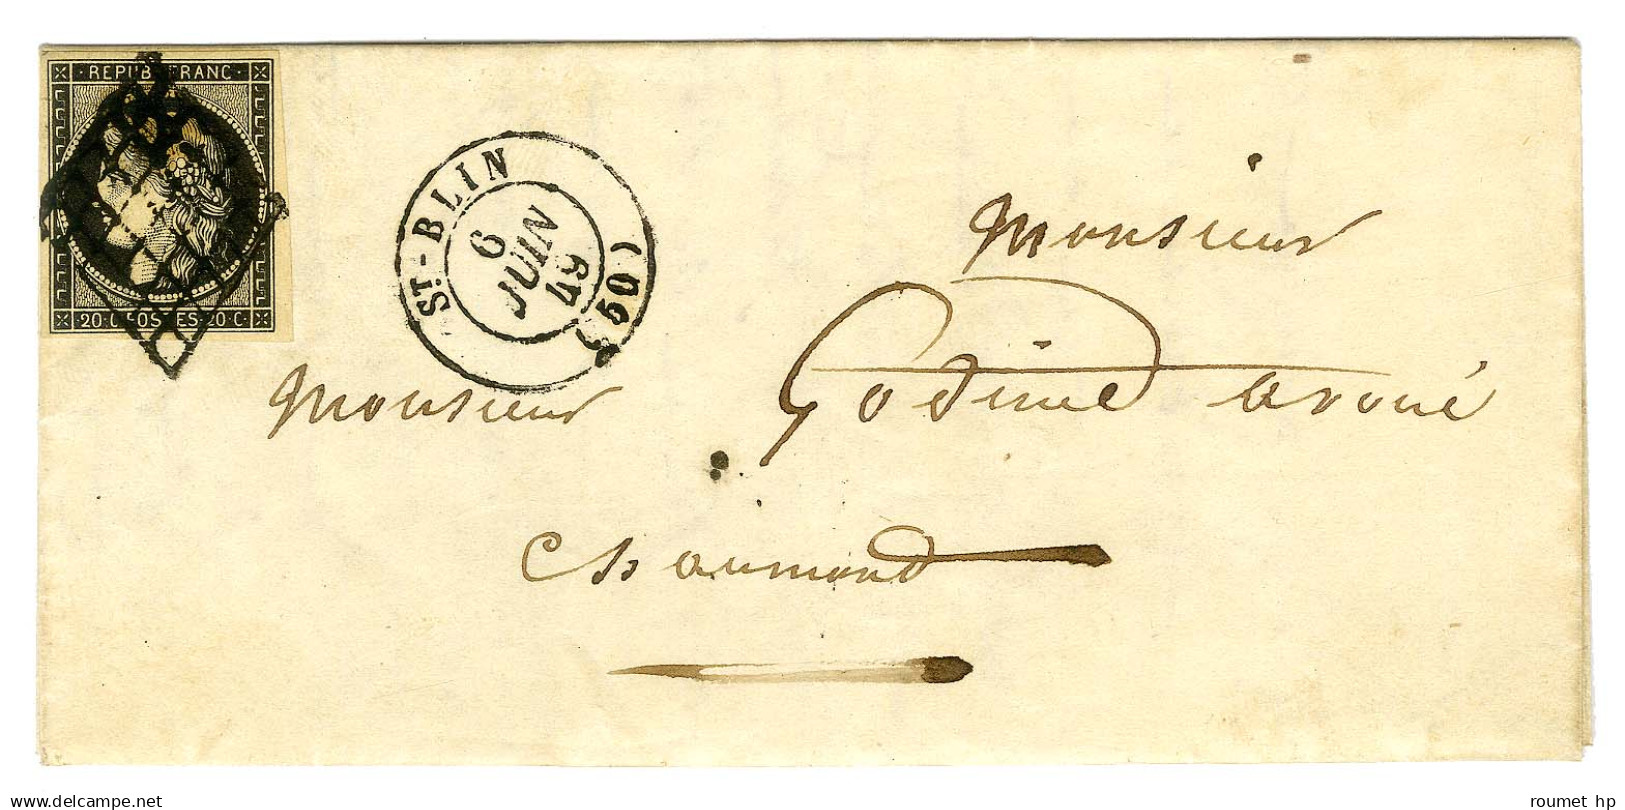 REPUB FRANC
20·C·POSTES·20·C·
ST-BLIN (50)
6
JUIN
49
Monsieur
Monsieur Godinet avoué
Chaumont
www.delcampe.net
roumet hp